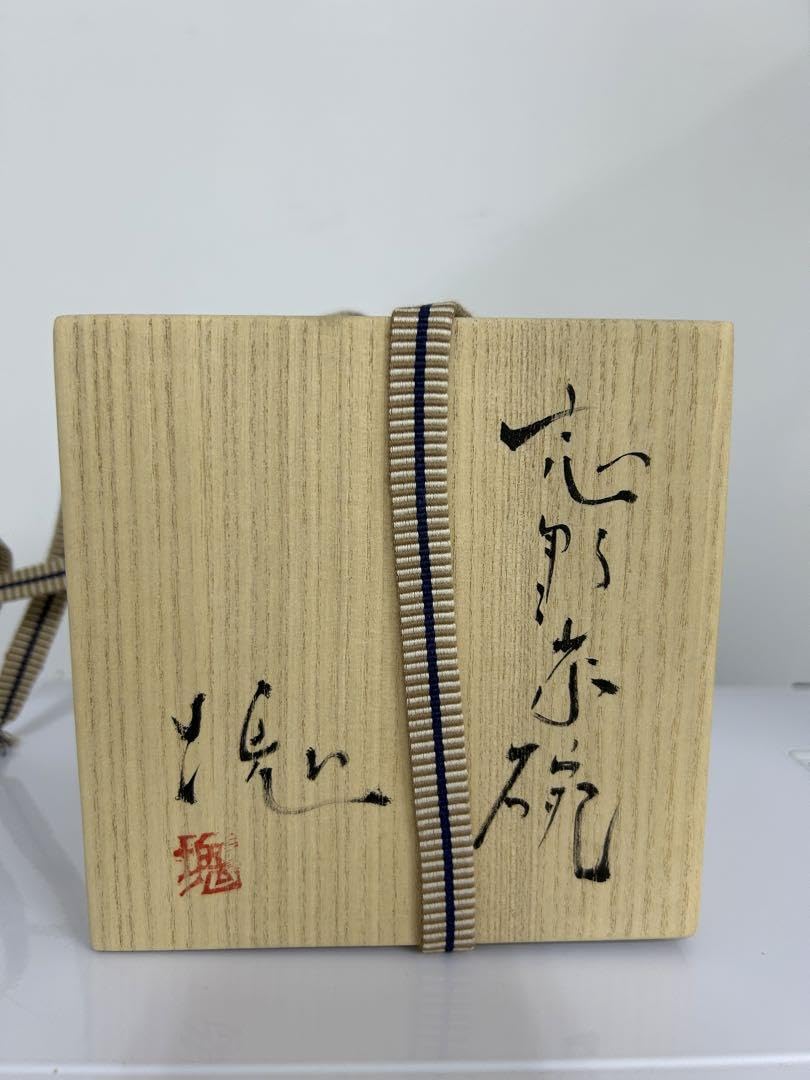 志野茶碗
塊
塊